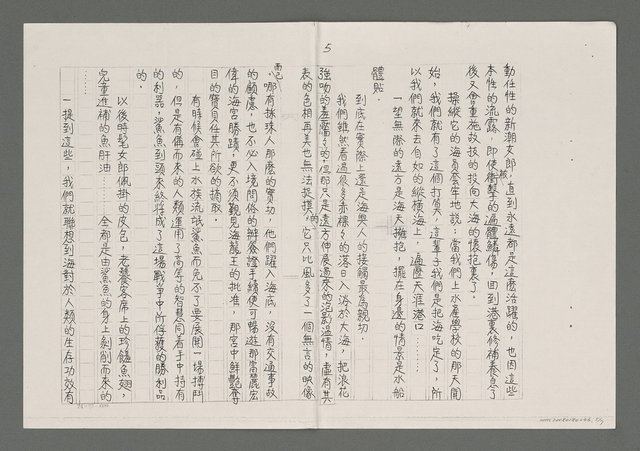 5
動任性的新潮女郎般,直到永遠都是這麼活躍的,也因這些
本性的流露,即使衝擊的遍體鱗傷,回到港裏修補養息了
後又會重施故技的投向大海的懷抱裏了。
操縱它的海員常常地說:當我們上水產學校的那天開
始,我們就有了這個打算,這輩子我們是把海吃定了,所
以我們就來去自如的縱橫海上,遍歷天涯港口⋯⋯
一望無際的遠方是海天擁抱,擺在身邊的情景是水船
體貼。
到底在實際上還是海與人的接觸最為親切。
我們雖然看過很多赤裸裸的落日入浴於大海,把浪花
強吻的羞羞的,但那只是遠方伸展過來的泡影溫情,虛有其
表的色相再美也無法捉摸的,它只比風多了一個無言的映像
而已。
哪有採珠人那麼的實切,他們躍入海底,沒有交通事故
的顧慮,也不必入境問俗的辦簽證手續便可暢遊那富麗宏
偉的海宮勝蹟,更不須覲見海龍王的批准,那宮中鮮艷奪
目的寶貝任其所欲的摘取。
有時候會碰上水族流氓鯊魚而免不了要展開一場搏鬥
的,但是有備而來的人類運用了高等的智慧同着手中持有
的利器,鯊魚到頭來終將成了這場戰爭中所俘獲的勝利品
的。
以後時髦女郎佩掛的皮包,老饕客席上的珍饈魚翅,
兒童進補的魚肝油⋯⋯全都是由鯊魚的身上剝削而來的
⋯⋯
一提到這些,我們就聯想到海對於人類的生存功效有